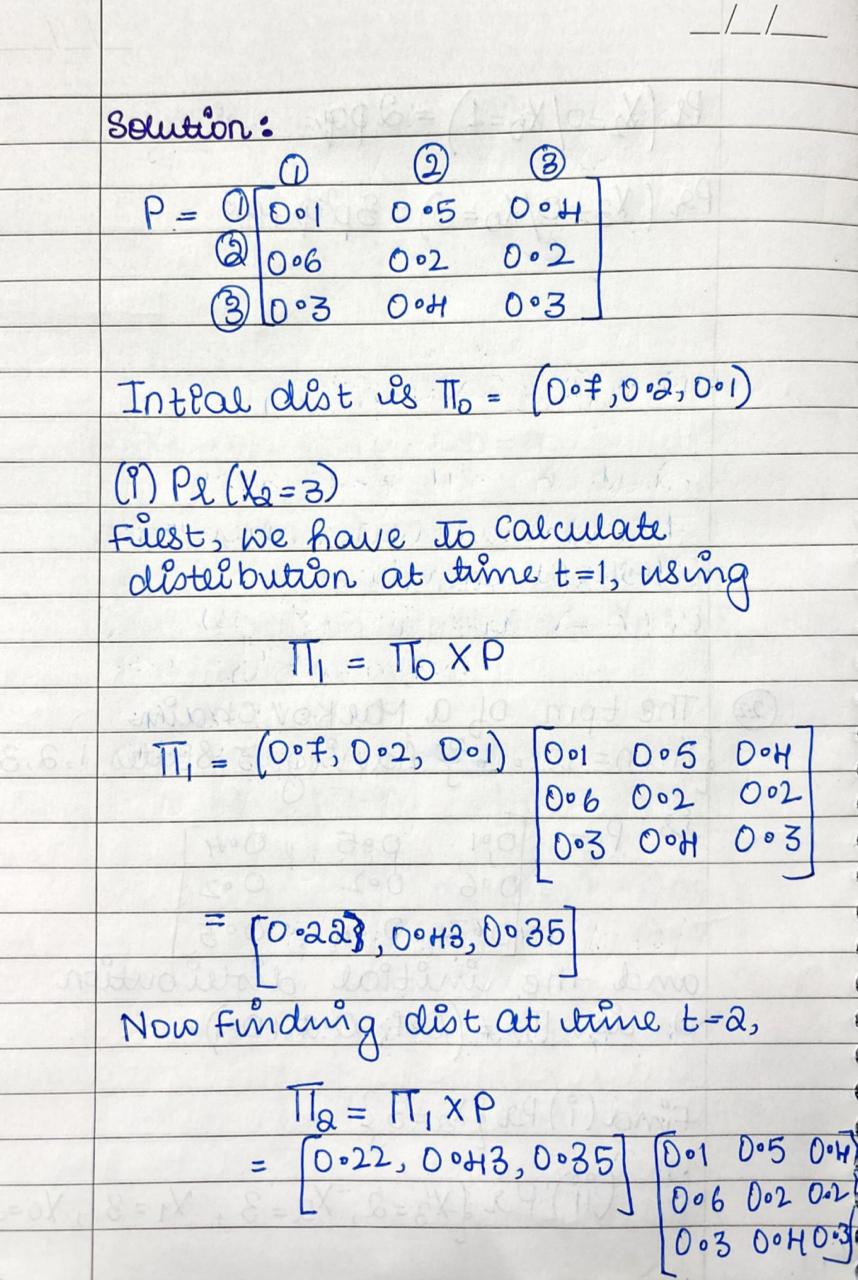 _/_/_
Solution:
① ② ③
P = ① [0.1 0.5 0.4
② 0.6 0.2 0.2
③ 0.3 0.4 0.3]
Intial dist is π₀ = (0.7, 0.2, 0.1)
(i) Pr (X₂ = 3)
First, we have to calculate
distribution at time t=1, using
π₁ = π₀ × P
π₁ = (0.7, 0.2, 0.1) [0.1 0.5 0.4
0.6 0.2 0.2
0.3 0.4 0.3]
= [0.22, 0.43, 0.35]
Now finding dist at time t=2,
π₂ = π₁ × P
= [0.22, 0.43, 0.35] [0.1 0.5 0.4
0.6 0.2 0.2
0.3 0.4 0.3]